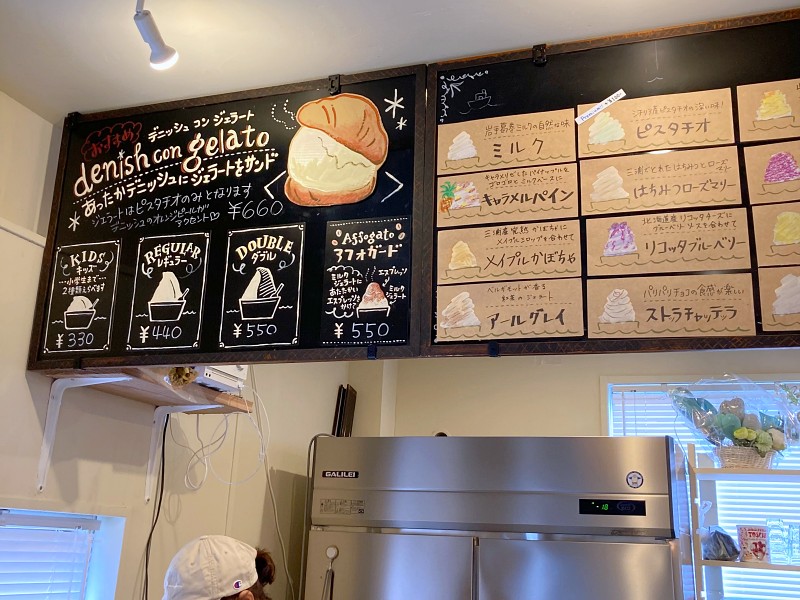 おすすめ
デニッシュ コン ジェラート
denish con gelato
あったかデニッシュにジェラートをサンド
ジェラートはピスタチオのみとなります
デニッシュのオレンジピールが
アクセント
¥660
KIDS
キッズ
小学生まで
2種類えらべます
¥330
REGULAR
レギュラー
¥440
DOUBLE
ダブル
¥550
Affogato
アフォガード
ミルク
ジェラートに
あたたかい
エスプレッソを
かけて
エスプレッソ
ミルク
ジェラート
¥550
岩手葛巻ミルクの自然な味
ミルク
キャラメリゼしたパイナップルを
ゴロゴロとミルクベースに
キャラメルパイン
三浦産完熟かぼちゃに
メイプルシロップを合わせて
メイプルかぼちゃ
ベルガモットが香る
紅茶のジェラート
アールグレイ
Premium +¥100
シチリア産ピスタチオの深い味!
ピスタチオ
三浦でとれたはちみつとローズマリー
はちみつローズマリー
北海道産リコッタチーズに
ブルーベリーソースを合わせて
リコッタブルーベリー
パリパリチョコの食感が楽しい
ストラチャッテラ
GALILEI
-18